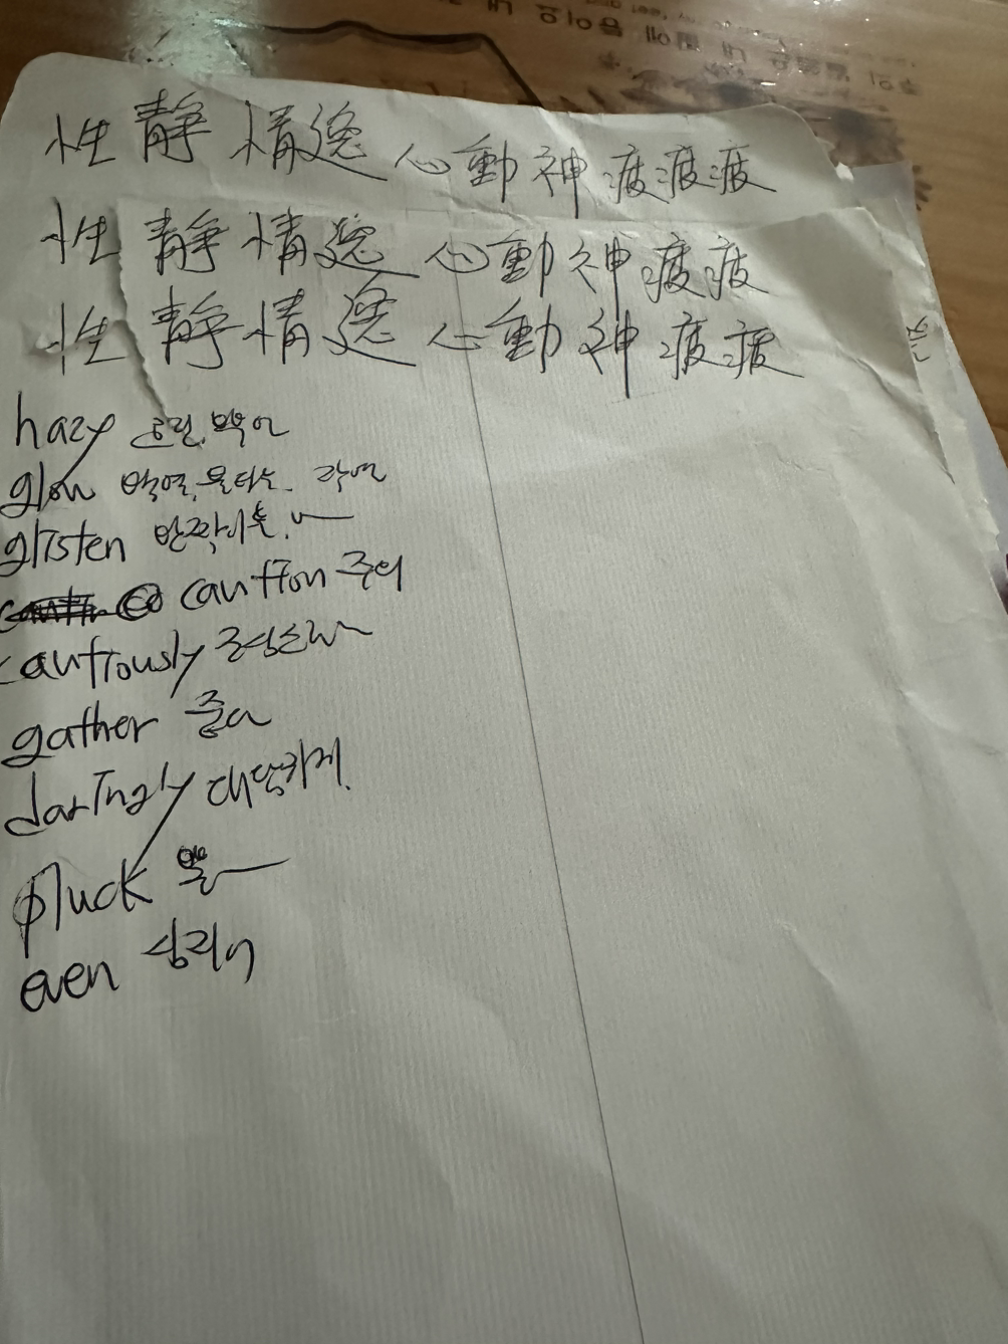 性靜情逸心動神疲疲疲
性靜情逸心動神疲疲
性靜情逸心動神疲疲
hazy 흐린,
glow
glisten 반짝이는,
caution 주의
cautiously 조심스레
gather
daringly 대담하게.
pluck
even 심지어